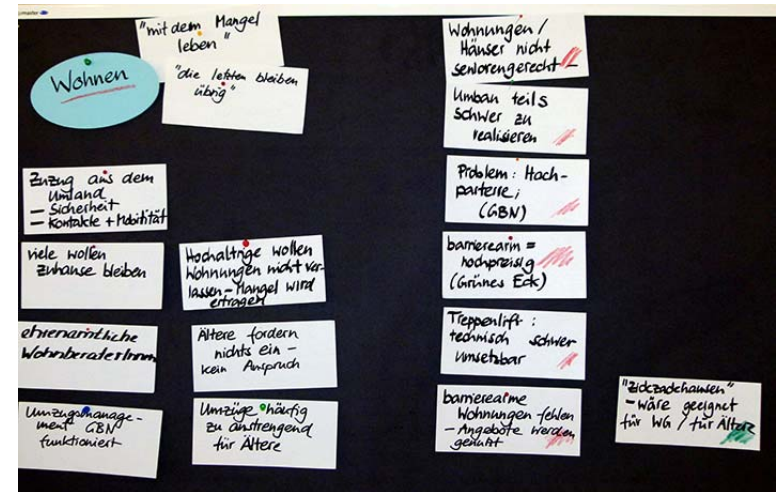 Wohnen
"mit dem Mangel
leben"
"die letzten bleiben
übrig"
Zuzug aus dem
Umland
– Sicherheit
– Kontakte + Mobilität
viele wollen
zuhause bleiben
ehrenamtliche
WohnberaterInnen
Umzugsmanage-
ment GBN
funktioniert
Hochaltrige wollen
Wohnungen nicht ver-
lassen – Mangel wird
ertragen
Ältere fordern
nichts ein –
kein Anspruch
Umzüge häufig
zu anstrengend
für Ältere
Wohnungen /
Häuser nicht
seniorengerecht –
Umbau teils
schwer zu
realisieren
Problem: Hoch-
parterre;
(GBN)
barrierearm =
hochpreisig
(Grünes Eck)
Treppenlift:
technisch schwer
umsetzbar
barrierearme
Wohnungen fehlen
– Angebote werden
genutzt
– wäre geeignet
für WG / für Ältere